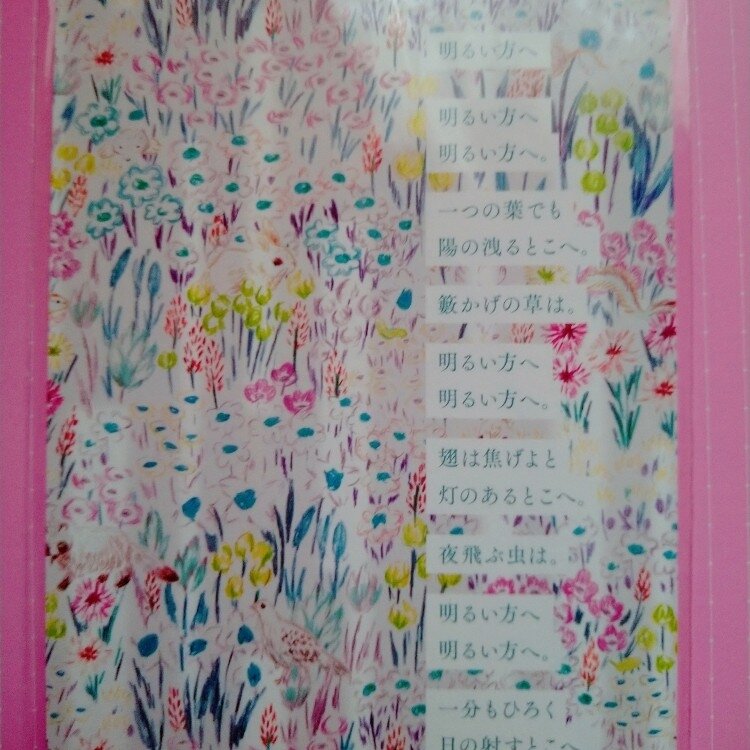 明るい方へ
明るい方へ
明るい方へ。
一つの葉でも
陽の洩るとこへ。
籔かげの草は。
明るい方へ
明るい方へ。
翅は焦げよと
灯のあるとこへ。
夜飛ぶ虫は。
明るい方へ
明るい方へ。
一分もひろく
日の射すとこへ